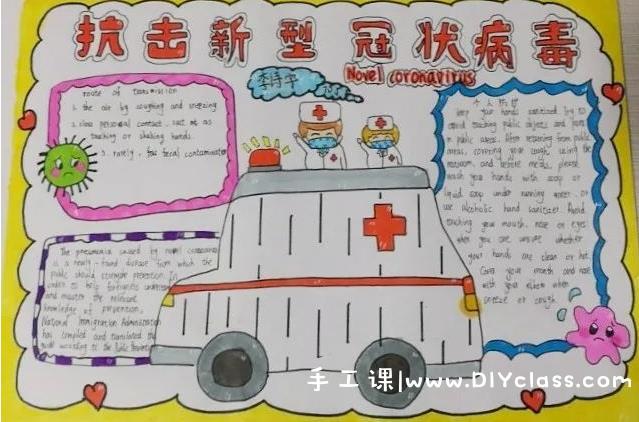 抗击新型冠状病毒
Novel coronavirus
route of transmission
1. the air by coughing and sneezing
2. close personal contact. such as
touching or shaking hands.
3. rarely, fecal contamination
The pneumonia caused by novel coronavirus
is a newly-found disease from which the
public should strengthen prevention. In
order to help foreigners understand
and master the relevant
knowledge of prevention,
National Immigration Administration
has compiled and translated the
according to the Public
个人防护
Keep your hands sanitized. try to
avoid touching public objects and
in public areas. After returning from public
areas, covering your cough, using the
restroom, and before meals, please
wash your hands with soap or
liquid soap under running water, or
use alcoholic hand sanitizer. Avoid
touching your mouth, nose or eyes
when you are unsure whether
your hands are clean or not.
Cover your mouth and nose
with your elbow when
sneeze or cough.
手工课|www.DIYclass.com